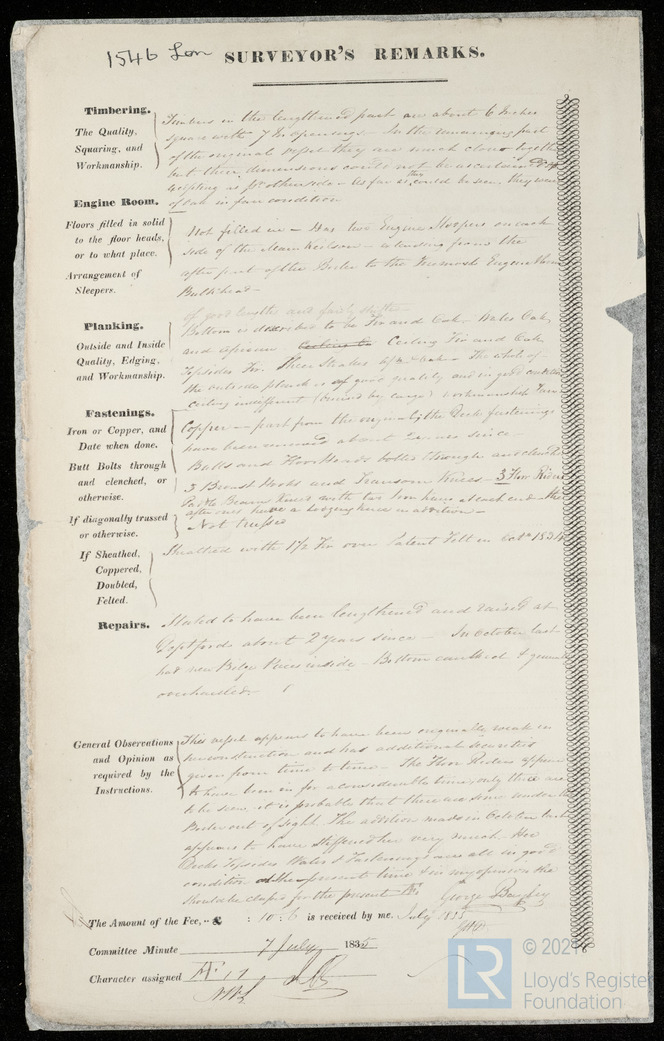 1546 Lon SURVEYOR'S REMARKS.
Timbering.
The Quality,
Squaring, and
Workmanship.
Timbers in the lengthened part are about 6 Inches
square with 7 In openings. In the remaining part
of the original vessel they are much closer together
but their dimensions could not be ascertained
as far as they could be seen, they were
of Oak in fair condition
Engine Room.
Floors filled in solid
to the floor heads,
or to what place.
Arrangement of
Sleepers.
Not filled in – Has two Engine Sleepers on each
side of the Main Keelson – extending from the
after part of the Boiler to the Engine Room
Bulkhead –
Planking.
Outside and Inside
Quality, Edging,
and Workmanship.
of good lengths and fairly shifted –
Bottom is described to be Fir and Oak – Wales Oak,
and Ceiling Fir and Oak
Topsides Fir. Three Strakes of Oak – The whole of
the outside plank is of good quality and in good condition
ceiling indifferent workmanship Fair
Fastenings.
Iron or Copper, and
Date when done.
Butt Bolts through
and clenched, or
otherwise.
If diagonally trussed
or otherwise.
Copper – part from the original, the Deck fastenings
have been renewed about since
Butts and Floor Heads bolted through and clenched
3 Breast Hooks and Transom Knees – 3 Floor Riders
Paddle Beam Knees with two Iron hangs at each end – the
after ones have a lodging knee in addition –
Not trussed
If Sheathed,
Coppered,
Doubled,
Felted.
Sheathed with 1½ Fir over Patent Felt in Octr 1834
Repairs.
Stated to have been lengthened and raised at
Deptford about 2 years since – In October last
had new Bilge Pieces inside – Bottom caulked &
overhauled.
General Observations
and Opinion as
required by the
Instructions.
This vessel appears to have been originally weak in
her construction and has additional securities
given from time to time – The Floor Riders appear
to have been in for a considerable time, only three are
to be seen, it is probable that there are some under the
Boiler out of sight. The addition made in October last
appears to have stiffened her very much. Her
Decks Topsides Wales & Fastenings are all in good
condition at the present time & in my opinion she
should be class'd for the present Æ1
George Bayley
The Amount of the Fee, – £ : 10 : 6 is received by me. July 1835
Committee Minute 7 July 1835
Character assigned Æ 1
LR © 2021
Lloyd's Register
Foundation